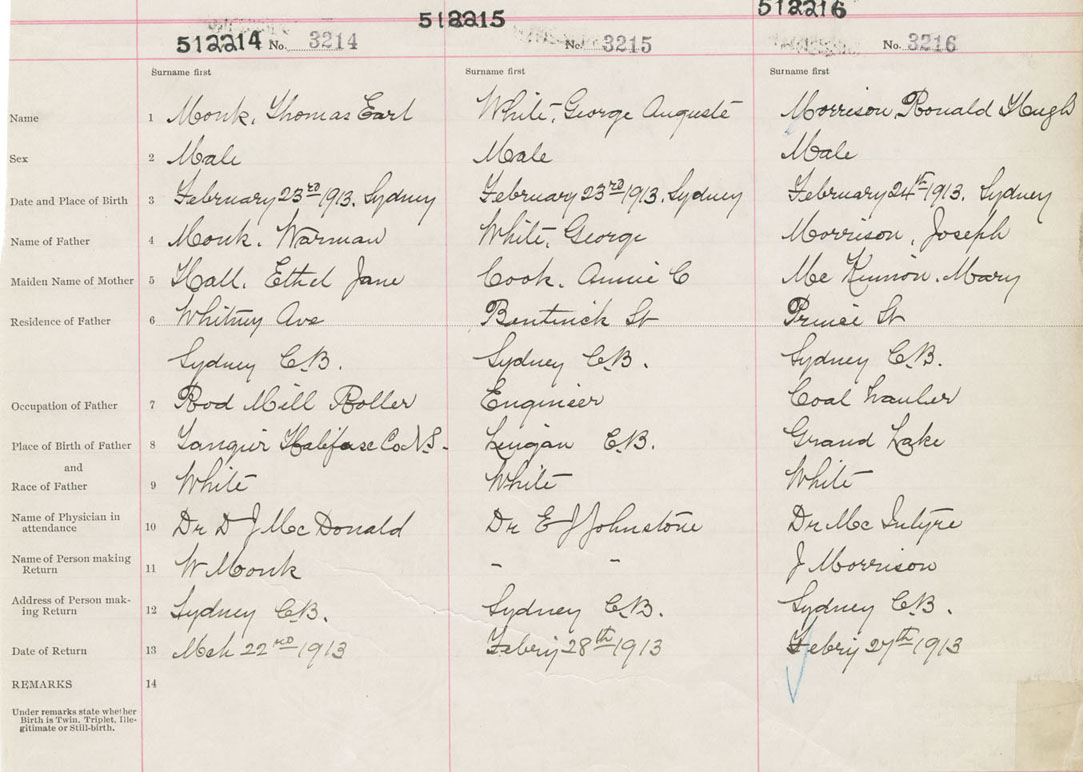 512214 No. 3214 512215 No. 3215 512216 No. 3216
Surname first Surname first Surname first
Name 1 Monk, Thomas Earl White, George Auguste Morrison, Ronald Hugh
Sex 2 Male Male Male
Date and Place of Birth 3 February 23rd 1913, Sydney February 23rd 1913, Sydney February 24th 1913, Sydney
Name of Father 4 Monk, Warman White, George Morrison, Joseph
Maiden Name of Mother 5 Hall, Ethel Jane Cook, Annie C Mc Kinnon, Mary
Residence of Father 6 Whitney Ave Bentinick St Prince St
Sydney C.B. Sydney C.B. Sydney C.B.
Occupation of Father 7 Rod Mill Roller Engineer Coal hauler
Place of Birth of Father 8 Tangier Halifax Co. N.S. Lingan C.B. Grand Lake
and
Race of Father 9 White White White
Name of Physician in
attendance 10 Dr D J McDonald Dr E J Johnstone Dr McIntyre
Name of Person making
Return 11 W Monk - - J Morrison
Address of Person mak-
ing Return 12 Sydney C.B. Sydney C.B. Sydney C.B.
Date of Return 13 Mch 22nd 1913 Febry 28th 1913 Febry 27th 1913
REMARKS 14
Under remarks state whether
Birth is Twin, Triplet, Ille-
gitimate or Still-birth.